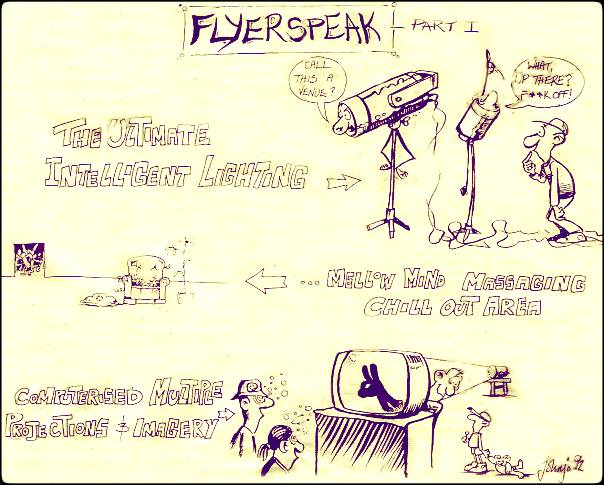 FLYERSPEAK - PART I
CALL
THIS A
VENUE?
WHAT,
UP THERE?
F**K OFF!
THE ULTIMATE
INTELLIGENT LIGHTING
... MELLOW MIND MASSAGING
CHILL OUT AREA
COMPUTERISED MULTIPLE
PROJECTIONS & IMAGERY